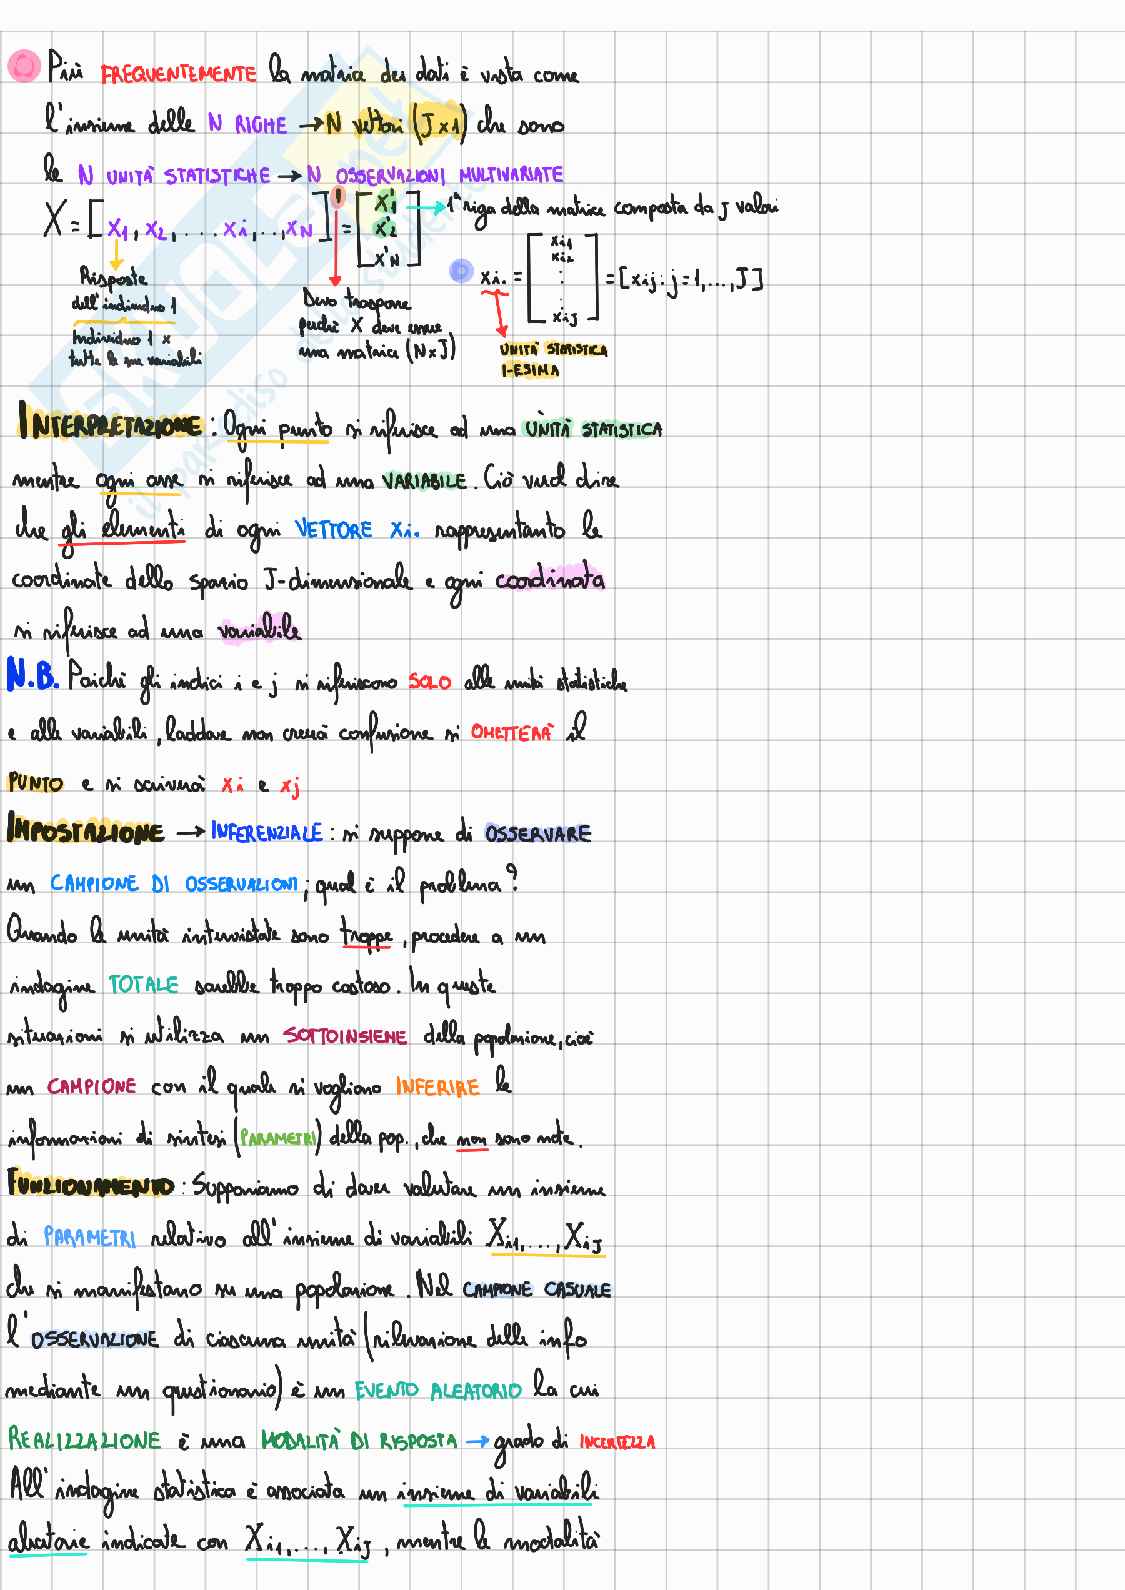 Più FREQUENTEMENTE la matrice dei dati è vista come
l'insieme delle N RIGHE → N vettori (J×1) che sono
le N UNITÀ STATISTICHE → N OSSERVAZIONI MULTIVARIATE
X = [x1, x2, ... xi, .., xN]' = [x'1 x'2 x'N] → 1ª riga della matrice composta da J valori
xi. = [xi1 xi2 . . . xiJ] = [xij: j=1,...,J]
Risposte
dell'individuo 1
Individuo 1 x
tutte le sue variabili
Devo trasporre
perché X deve essere
una matrice (N×J)
UNITÀ STATISTICA
I-ESIMA
INTERPRETAZIONE: Ogni punto si riferisce ad una UNITÀ STATISTICA
mentre ogni asse si riferisce ad una VARIABILE. Ciò vuol dire
che gli elementi di ogni VETTORE xi. rappresentanto le
coordinate dello spazio J-dimensionale e ogni coordinata
si riferisce ad una variabile
N.B. Poiché gli indici i e j si riferiscono SOLO alle unità statistiche
e alle variabili, laddove non creerà confusione si OMETTERÀ il
PUNTO e si scriverà xi e xj
IMPOSTAZIONE → INFERENZIALE: si suppone di OSSERVARE
un CAMPIONE DI OSSERVAZIONI; qual è il problema?
Quando le unità intervistate sono troppe, procedere a un
indagine TOTALE sarebbe troppo costoso. In queste
situazioni si utilizza un SOTTOINSIEME della popolazione, cioè
un CAMPIONE con il quale si vogliono INFERIRE le
informazioni di sintesi (PARAMETRI) della pop., che non sono note.
FUNZIONAMENTO: Supponiamo di dover valutare un insieme
di PARAMETRI relativo all'insieme di variabili Xi1,...,XiJ
che si manifestano su una popolazione. Nel CAMPIONE CASUALE
l'OSSERVAZIONE di ciascuna unità (rilevazione delle info
mediante un questionario) è un EVENTO ALEATORIO la cui
REALIZZAZIONE è una MODALITÀ DI RISPOSTA → grado di INCERTEZZA
All'indagine statistica è associata un insieme di variabili
aleatorie indicate con Xi1,...,XiJ, mentre le modalità